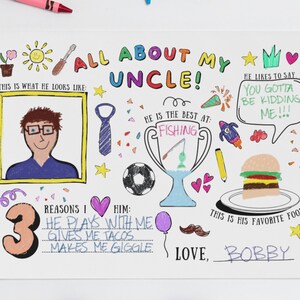 ALL ABOUT MY
UNCLE!
THIS IS WHAT HE LOOKS LIKE:
HE IS THE BEST AT:
FISHING
HE LIKES TO SAY
YOU GOTTA
BE KIDDING
ME!!!
3 REASONS I HIM:
HE PLAYS WITH ME
GIVES ME TACOS
MAKES ME GIGGLE
THIS IS HIS FAVORITE FOOD
LOVE, BOBBY